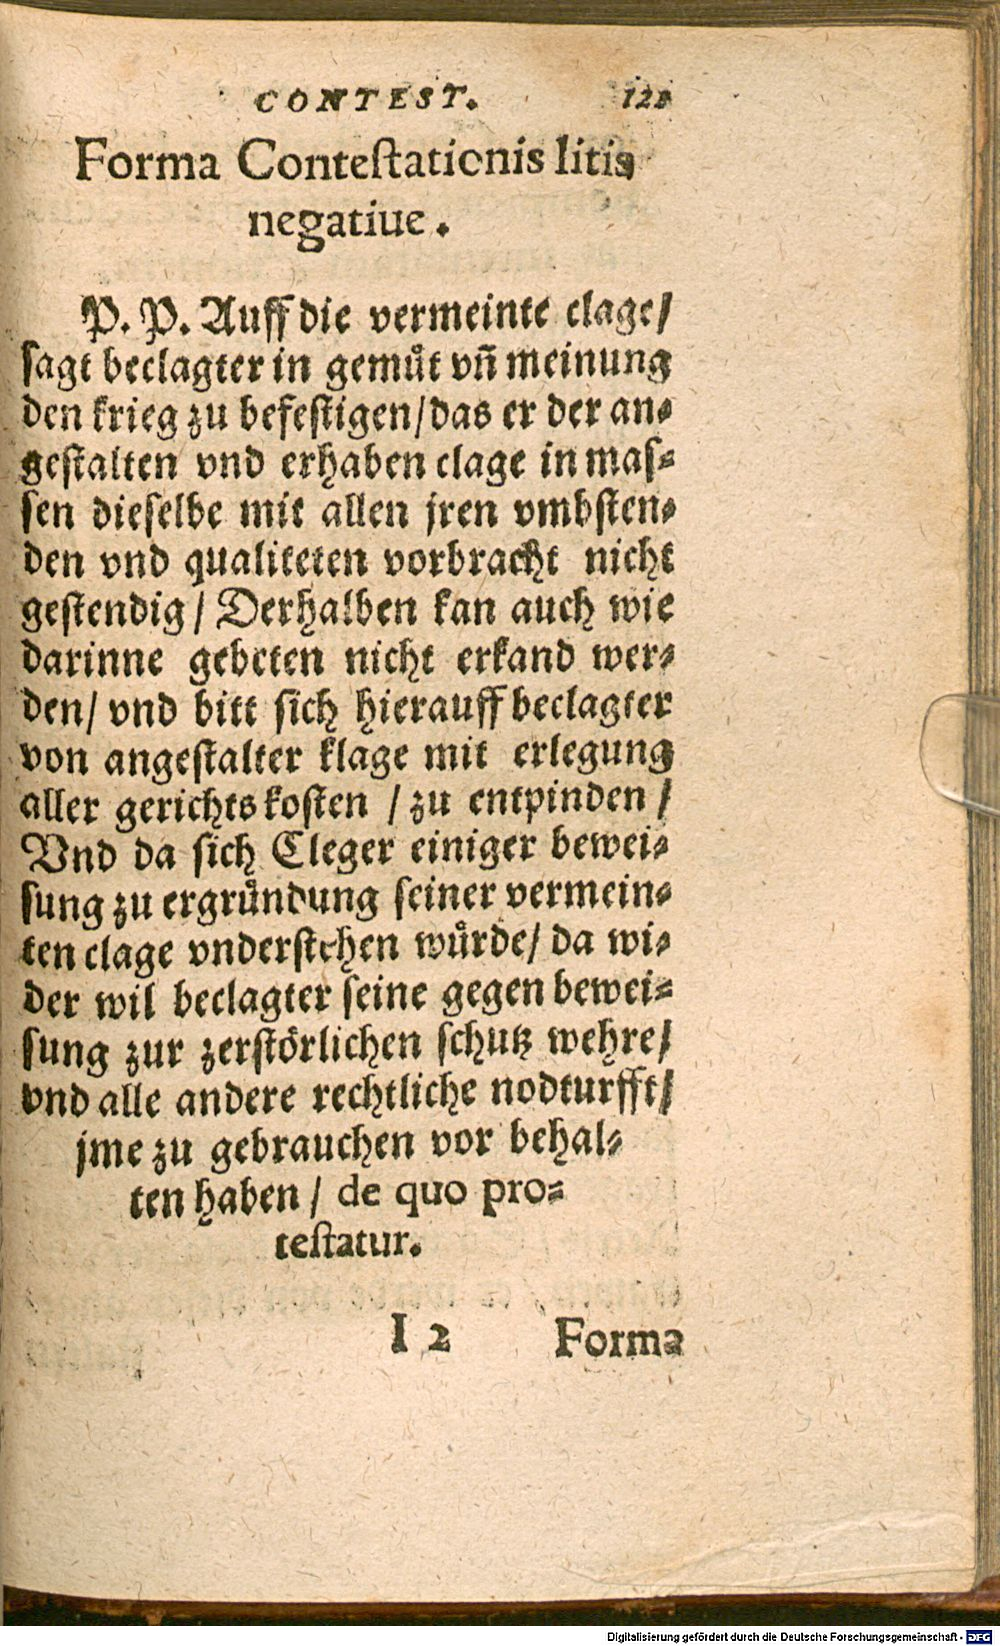 CONTEST.
Forma Contestationis litis
negatiue.
P. P. Auff die vermeinte clage/
sagt beclagter in gemuͤt vn̄ meinung
den krieg zu befestigen/das er der an⸗
gestalten vnd erhaben clage in mas⸗
sen dieselbe mit allen jren vmbsten⸗
den vnd qualiteten vorbracht nicht
gestendig/ Derhalben kan auch wie
darinne gebeten nicht erkand wer⸗
den/ vnd bitt sich hierauff beclagter
von angestalter klage mit erlegung
aller gerichts kosten / zu entpinden /
Vnd da sich Cleger einiger bewei⸗
sung zu ergruͤndung seiner vermein⸗
ten clage vnderstehen wuͤrde/ da wi⸗
der wil beclagter seine gegen bewei⸗
sung zur zerstoͤrlichen schutz wehre/
vnd alle andere rechtliche nodturfft/
jme zu gebrauchen vor behal⸗
ten haben / de quo pro⸗
testatur.
I 2 Forma
Digitalisierung gefördert durch die Deutsche Forschungsgemeinschaft - DFG